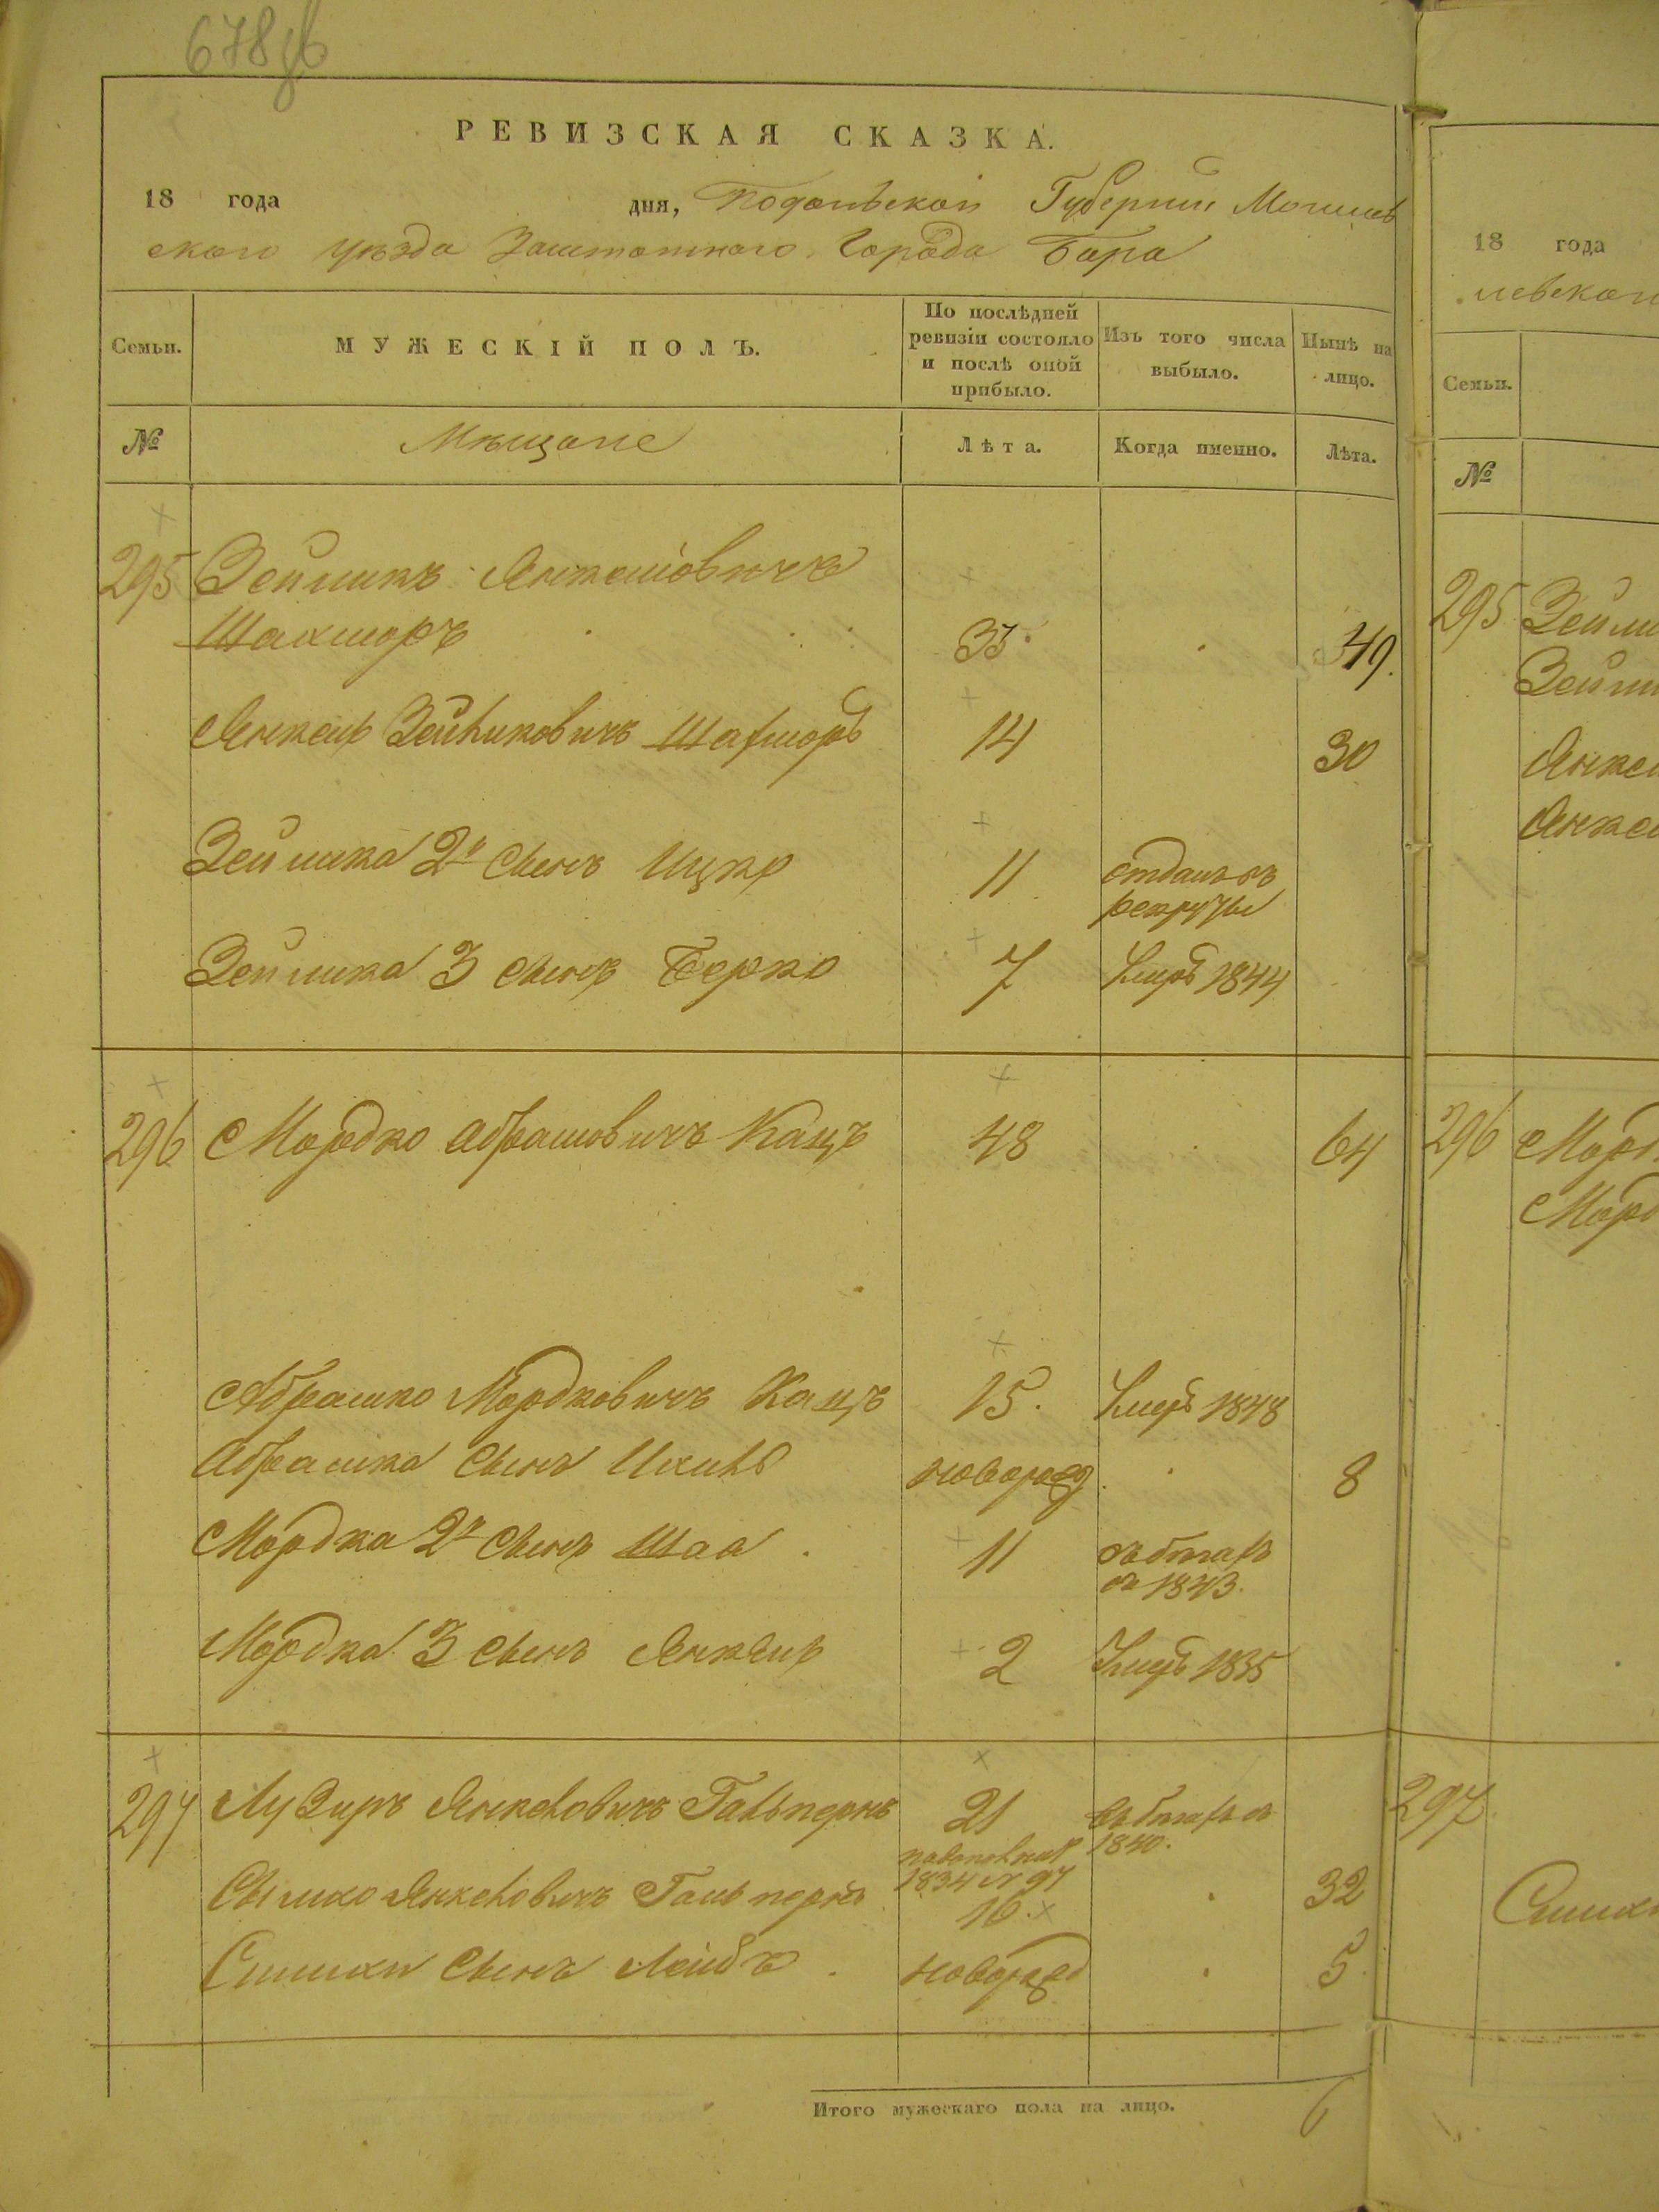 678об
РЕВИЗСКАЯ СКАЗКА.
18 года дня, Подольской Губернии Могилев
ского уѣзда Заштатного Города Бара
Семьи. МУЖЕСКІЙ ПОЛЪ. По послѣдней ревизіи состояло и послѣ оной прибыло. Изъ того числа выбыло. Нынѣ на лицо.
№ Мѣщане Лѣта. Когда именно. Лѣта.
295 Зейликъ Янкелiовичъ
Шахморъ 33. 49.
Янкель Зейликовичъ Шахморъ 14 30
Зейлика 2й Сынъ Ицко 11 отданъ въ рекруты
Зейлика 3 Сынъ Берко 7 Умеръ 1844
296 Мордко Абрамовичъ Кацъ 48 64
Абрамко Мордковичъ Кацъ 15. Умеръ 1848
Абрамка Сынъ Ихиль новорожд. 8
Мордка 2й Сынъ Шая 11 въ бегахъ съ 1843.
Мордка 3 Сынъ Янкель 2 Умеръ 1835
297 Лузиръ Янкеловичъ Гальпернъ 21 въ бегахъ съ 1840.
1834 № 97
Сымхо Янкеловичъ Гальпернъ 16. 32
Симхи Сынъ Лейбъ новорожд 5
Итого мужескаго пола на лицо. 6
18 года
левского
Семьи.
№
295
296
297